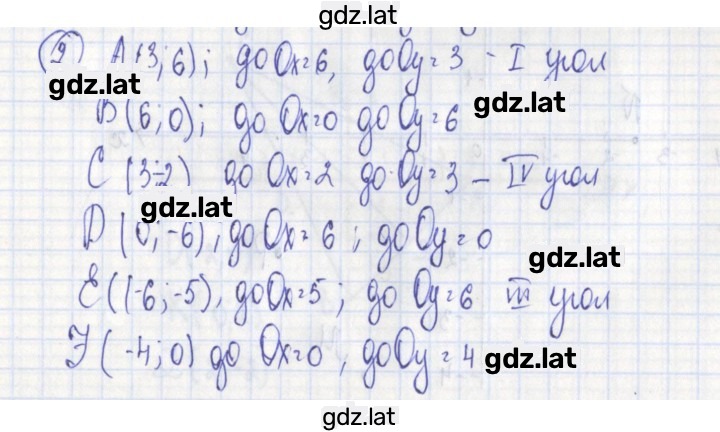 gdz.lat
9 A(3;6); до Ox=6, до Oy=3 - I угол
gdz.lat
gdz.lat
B(6;0); до Ox=0 до Oy=6
C(3;-2) до Ox=2 до Oy=3 – IV угол
gdz.lat
D(0;-6), до Ox=6; до Oy=0
gdz.lat
E((-6;-5), до Ox=5; до Oy=6 III угол
F(-4;0) до Ox=0, до Oy=4
gdz.lat
gdz.lat